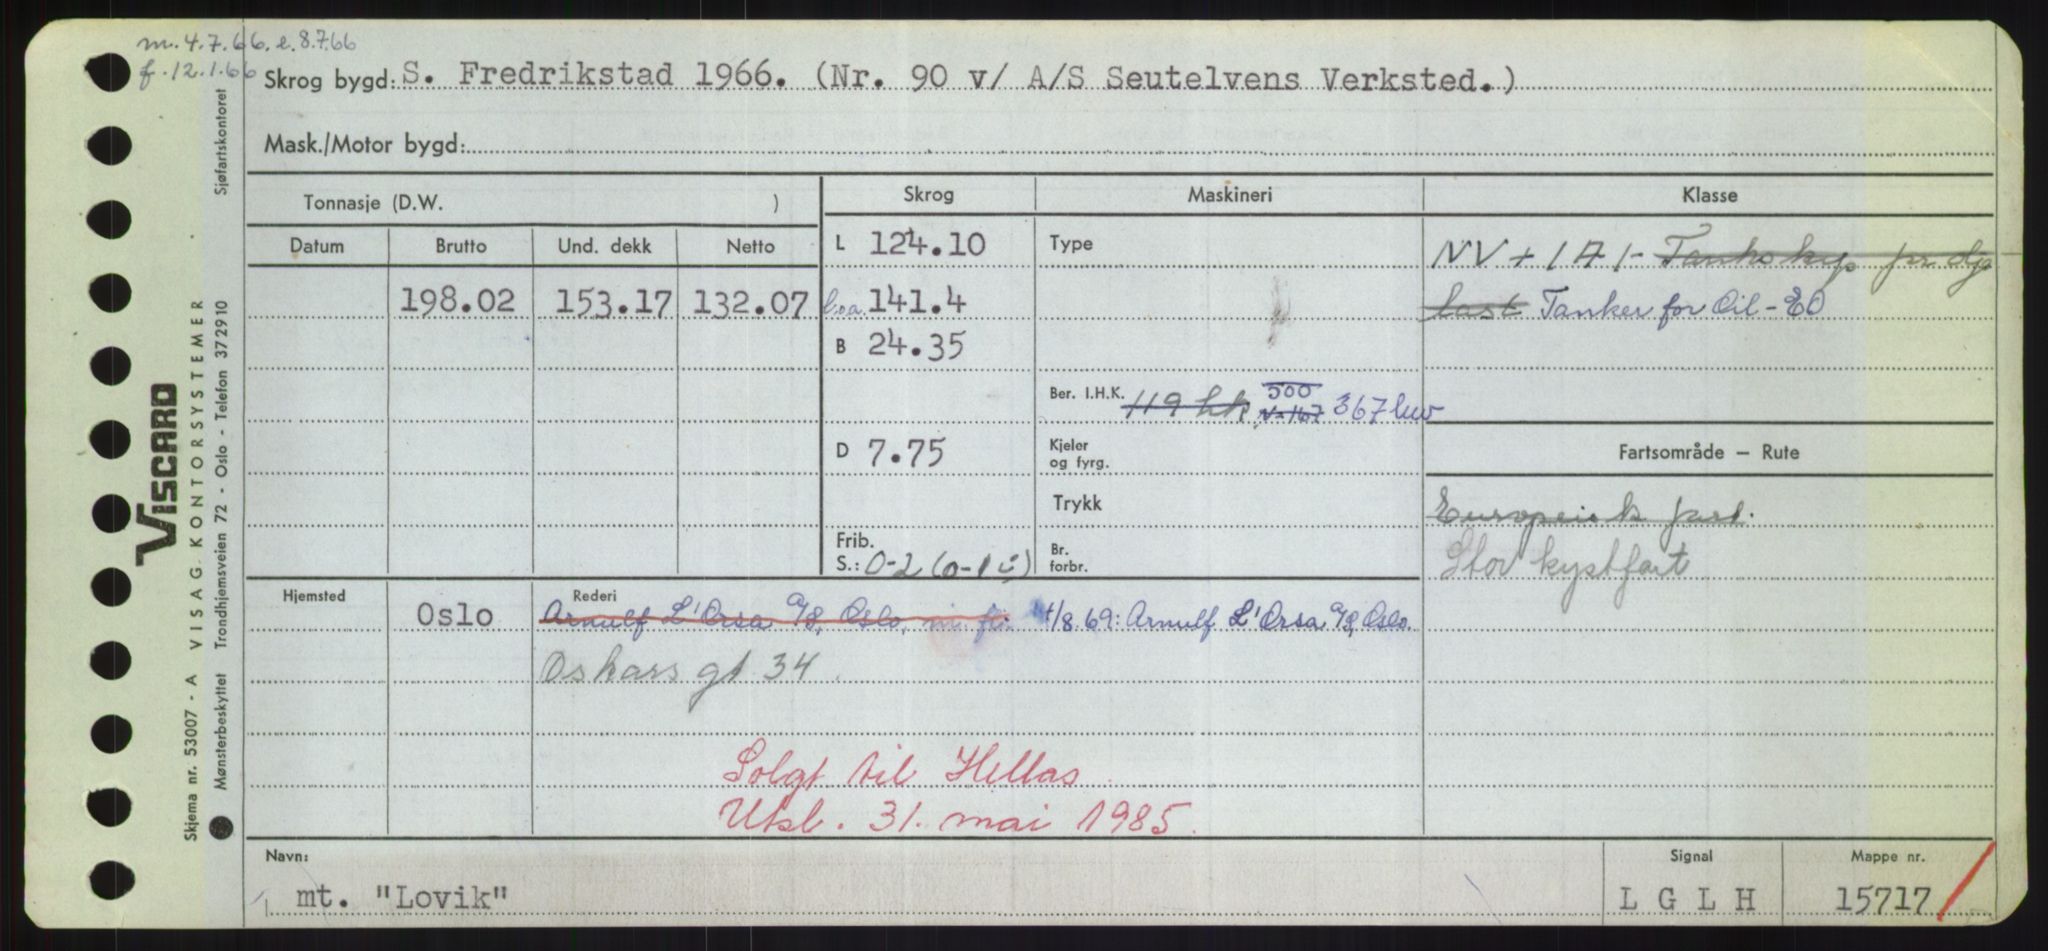 m. 4.7.66. e. 8.7.66
f. 12.1.66
Skrog bygd: S. Fredrikstad 1966. (Nr. 90 v/ A/S Seutelvens Verksted.)
Mask./Motor bygd:
Tonnasje (D.W. )
Skrog Maskineri Klasse
Datum Brutto Und. dekk Netto
198.02 153.17 132.07
L 124.10
l.o.a. 141.4
B 24.35
D 7.75
Frib.
S.: 0-2 (0-1 )
Type
Ber. I.H.K. 119 hk 500 367 kw
Kjeler
og fyrg.
Trykk
Br.
forbr.
NV + 1A1- Tankskip for olje
last Tanker for Oil - EO
Fartsområde — Rute
Europeisk fart.
Stor kystfart
Hjemsted Oslo
Rederi
Arnulf L'Orsa A/S, Oslo, 4/8.69: Arnulf L'Orsa A/S, Oslo.
Oskars gt 34
Solgt til Hellas
Utsl. 31. mai 1985.
Navn:
mt. "Lovik"
Signal
L G L H
Mappe nr.
15717
VISCARD
Skjema nr. 53007 - A VISAG. KONTORSYSTEMER
Mønsterbeskyttet Trondhjemsveien 72 - Oslo - Telefon 372910 Sjøfartskontoret